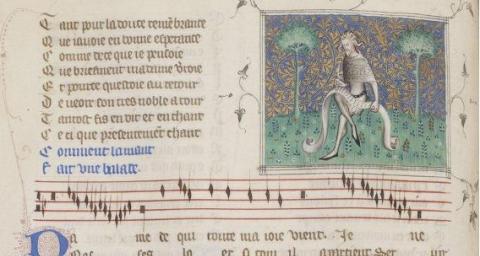 Tant pour la douce remembrance
Que iauoie en bonne esperance
Comme de ce que ie pensoie
Que briefment ma dame verroie
Et pour ce questoie au retour
De ueoir son tres noble atour
Tantost fis en dit et en chant
Ce ci que presentement chant
Comment lamant
Fait vne balade.
Da me de qui toute ma ioie vient. Je ne
et si com il apartient Ser uir